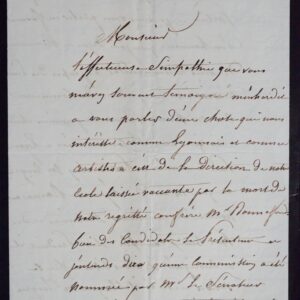 Monsieur
l'affectueuse Simpathie que vous
m'avez souvent témoigné m'enhardit
a vous parler d'une chose qui nous
intéresse comme Lyonnais et comme
artistes c'est de la direction de notre
école laissée vacante par la mort de
notre regretté confrère Mr Bonnefond
bien des Candidats se
dit qu'une commission a été
nommée par Mr le Sénateur